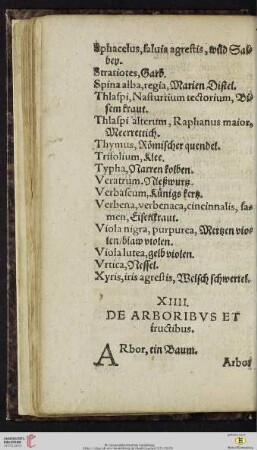 Sphacelus, saluia agrestis, wild Sal-
bey.
Stratiotes, Garb.
Spina alba, regia, Marien Distel.
Thlaspi, Nasturtium tectorium, Bi-
sem kraut.
Thlaspi alterum, Raphanus maior,
Meerrettich.
Thymus, Römischer quendel.
Trifolium, Klee.
Typha, Narren kolben.
Veratrum. Nießwurtz.
Verbascum, Künigs kertz.
Verbena, verbenaca, cincinnalis, fa-
men, Eisenkraut.
Viola nigra, purpurea, Mertzen vio-
len/blaw violen.
Viola lutea, gelb violen.
Vrtica, Nessel.
Xyris, iris agrestis, Welsch schwertel.
XIIII.
DE ARBORIBVS ET
fructibus.
ARbor, ein Baum.
Arbor